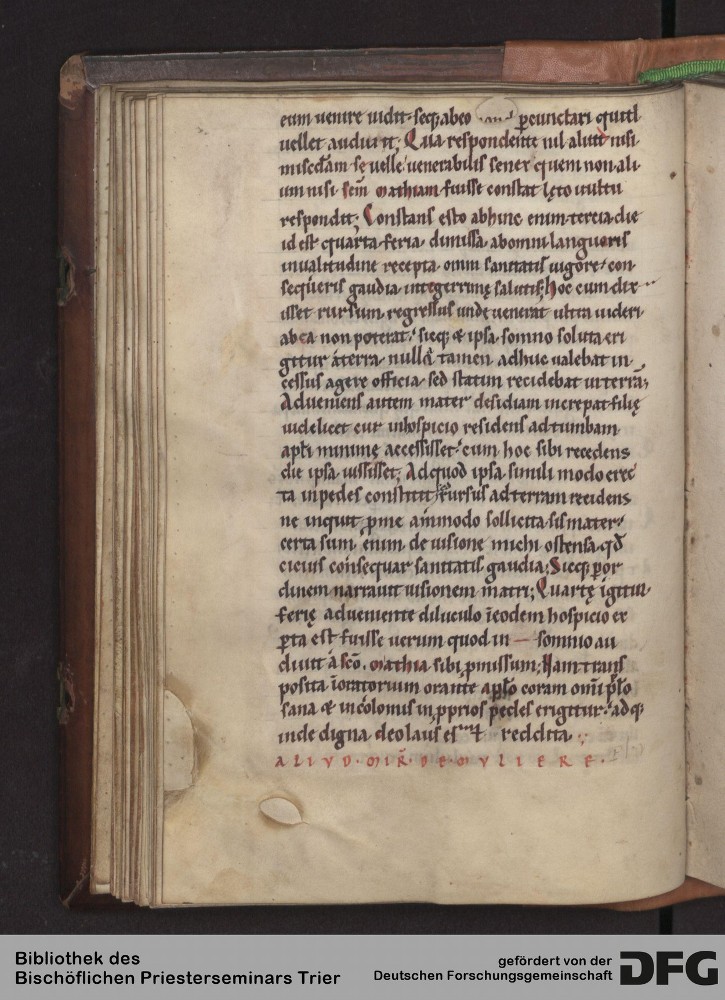 eum uenire uidit. seq; abeo percunctari quid
uellet audiuit; Qua respondente nil aliud nisi
misedam se uelle uenerabilis senex equem non ali
um nisi scm̄ mathiam fuisse constat lęto uultu
respondit; Constans esto abhinc enim tercia die
id est quarta feria. dimissa abomni languoris
inualitudine recepta omni sanitatis uigore con
sequeris gaudia integerrimę salutis; Hoc cum dix
isset rursum regressus unde uenerat ultra uideri
abea non poterat. sicq; & ipsa somno soluta eri
gitur áterra. nullá tamen adhuc ualebat in
cessus agere officia. sed statim recidebat interrā;
Adueniens autem mater desidiam increpat filię
uidelicet cur inhospicio residens adtumbam
apłi minimę accessisset. cum hoc sibi recedens
die ipsa iussisset; Adquod ipsa simili modo erec
ta inpedes constitit; rursus adterram recidens
ne inquit pro me ammodo sollicita sis mater
certa sum enim de uisione michi ostensa. qd̄
cicius consequar sanitatis gaudia; Sicq; ꝑor
dinem narrauit uisionem matri; Quartę igitur
ferię adueniente diluculo īeodem hospicio ex
ꝑta est fuisse uerum quod in somnio au
diuit á scō. mathia sibi ꝓmissum; Nam trans
posita ioratorium orante aplo coram omī pło
sana & incolomis in ꝓprios pedes erigitur. adq;
inde digna deo laus reddita.
ALIVD. MIR̄. DE MVLIERE.
Bibliothek des
Bischöflichen Priesterseminars Trier
gefördert von der
Deutschen Forschungsgemeinschaft
DFG